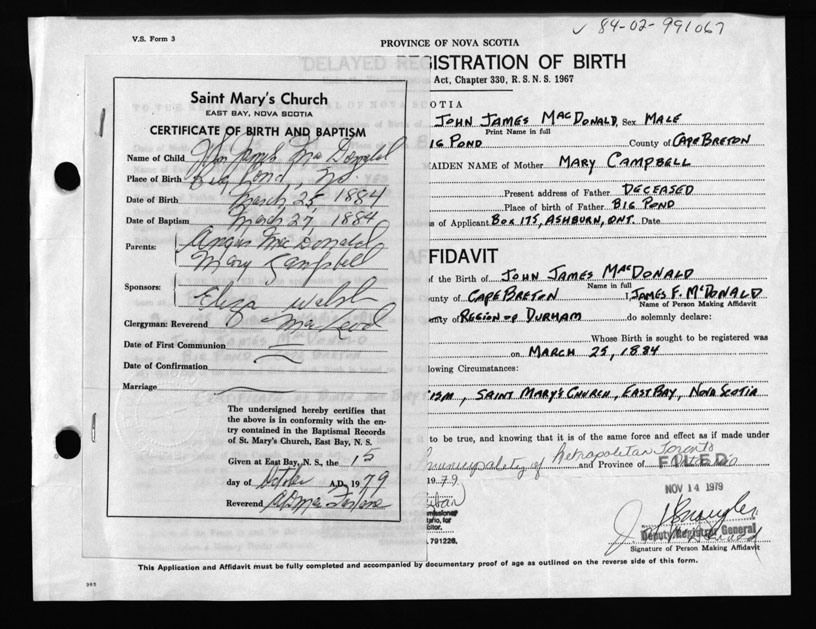 84-02-991067
V.S. Form 3
PROVINCE OF NOVA SCOTIA
DELAYED REGISTRATION OF BIRTH
Act, Chapter 330, R.S.N.S. 1967
Saint Mary's Church
EAST BAY, NOVA SCOTIA
CERTIFICATE OF BIRTH AND BAPTISM
Name of Child John Joseph Mac Donald
Place of Birth Big Pond, NS
Date of Birth March 25, 1884
Date of Baptism March 27, 1884
Parents: Angus MacDonald
Mary Campbell
Sponsors:
Eliza Walsh
Clergyman: Reverend MacLeod
Date of First Communion
Date of Confirmation
Marriage
The undersigned hereby certifies that
the above is in conformity with the en-
try contained in the Baptismal Records
of St. Mary's Church, East Bay, N. S.
Given at East Bay, N. S., the 15
day of October A.D. 1979
Reverend
OTIA
JOHN JAMES MACDONALD, Sex MALE
Print Name in full
IG POND County of CAPE BRETON
AIDEN NAME of Mother MARY CAMPBELL
Present address of Father DECEASED
Place of birth of Father BIG POND
s of Applicant BOX 175, ASHBURN, ONT. Date
FFIDAVIT
f the Birth of JOHN JAMES MACDONALD
Name in full
unty of CAPE BRETON I, JAMES F. MCDONALD
Name of Person Making Affidavit
nty of REGION OF DURHAM do solemnly declare:
Whose Birth is sought to be registered was
on MARCH 25, 1884
lowing Circumstances:
ISM, SAINT MARY'S CHURCH, EAST BAY, NOVA SCOTIA
to be true, and knowing that it is of the same force and effect as if made under
Municipality of Metropolitan Toronto
and Province of Ontario
FILED
1979
NOV 14 1979
ario, for
icitor.
.791226.
Deputy Registrar General
Signature of Person Making Affidavit
This Application and Affidavit must be fully completed and accompanied by documentary proof of age as outlined on the reverse side of this form.